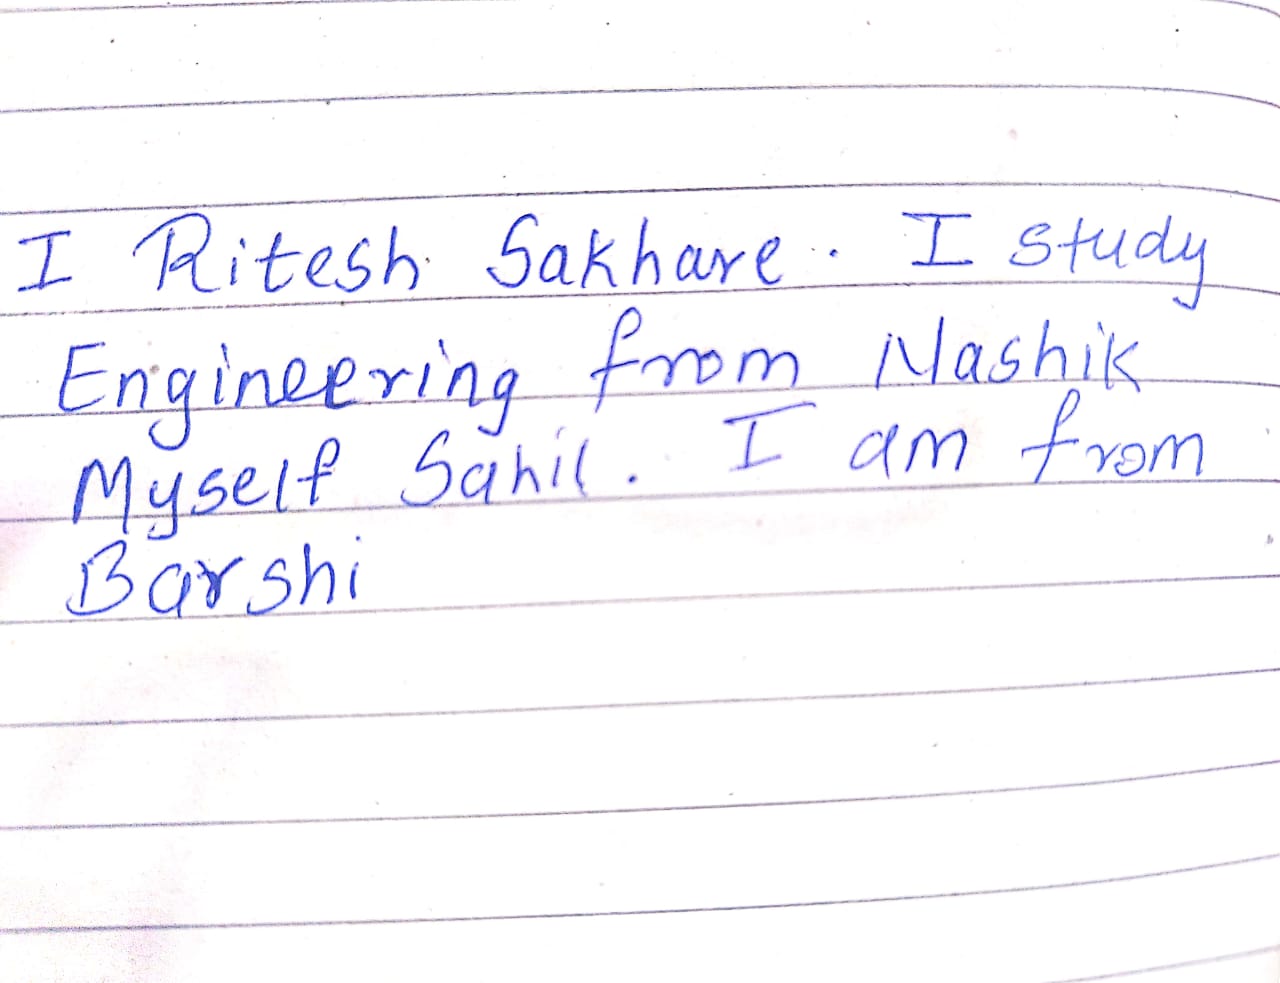 I Ritesh Sakhare. I study
Engineering from Nashik
Myself Sahil. I am from
Barshi